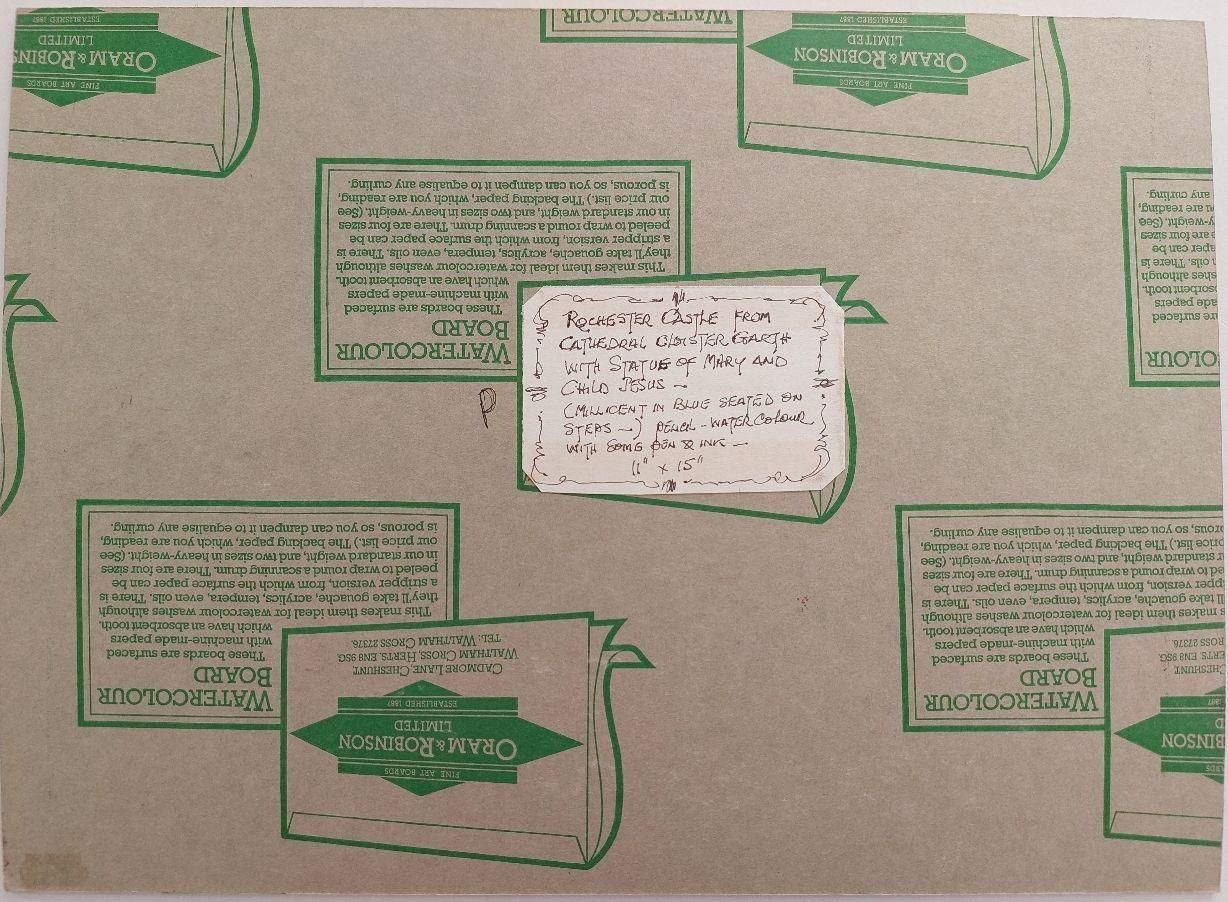 ESTABLISHED 1887
ORAM & ROBINS
LIMITED
FINE ART BOARDS
WATERCOLOUR
ESTABLISHED 1887
ORAM & ROBINSON
LIMITED
FINE ART BOARDS
WATERCOLOUR
BOARD
These boards are surfaced
with machine-made papers
which have an absorbent tooth.
This makes them ideal for watercolour washes although
they'll take gouache, acrylics, tempera, even oils. There is
a stripper version, from which the surface paper can be
peeled to wrap round a scanning drum. There are four sizes
in our standard weight, and two sizes in heavy-weight. (See
our price list.) The backing paper, which you are reading,
is porous, so you can dampen it to equalise any curling.
any curling.
u are reading,
y-weight. (See
are four sizes
aper can be
n oils. There is
shes although
sorbent tooth.
ade papers
are surfaced
OLOUR
ROCHESTER CASTLE FROM
CATHEDRAL CLOISTER GARTH
WITH STATUE OF MARY AND
CHILD JESUS ~
(MILLICENT IN BLUE SEATED ON
STEPS ~) PENCIL - WATERCOLOUR
WITH SOME PEN & INK ~
11" x 15"
P
WATERCOLOUR
BOARD
These boards are surfaced
with machine-made papers
which have an absorbent tooth.
This makes them ideal for watercolour washes although
they'll take gouache, acrylics, tempera, even oils. There is
a stripper version, from which the surface paper can be
peeled to wrap round a scanning drum. There are four sizes
in our standard weight, and two sizes in heavy-weight. (See
our price list.) The backing paper, which you are reading,
is porous, so you can dampen it to equalise any curling.
CADMORE LANE, CHESHUNT
WALTHAM CROSS, HERTS, EN8 9SG
TEL: WALTHAM CROSS 27376.
ESTABLISHED 1887
ORAM & ROBINSON
LIMITED
FINE ART BOARDS
WATERCOLOUR
BOARD
These boards are surfaced
with machine-made papers
which have an absorbent tooth.
s makes them ideal for watercolour washes although
ll take gouache, acrylics, tempera, even oils. There is
pper version, from which the surface paper can be
ed to wrap round a scanning drum. There are four sizes
r standard weight, and two sizes in heavy-weight. (See
price list.) The backing paper, which you are reading,
rous, so you can dampen it to equalise any curling.
CHESHUNT
HERTS, EN8 9SG
ROSS 27376.
1887
BINSON
D
RDS